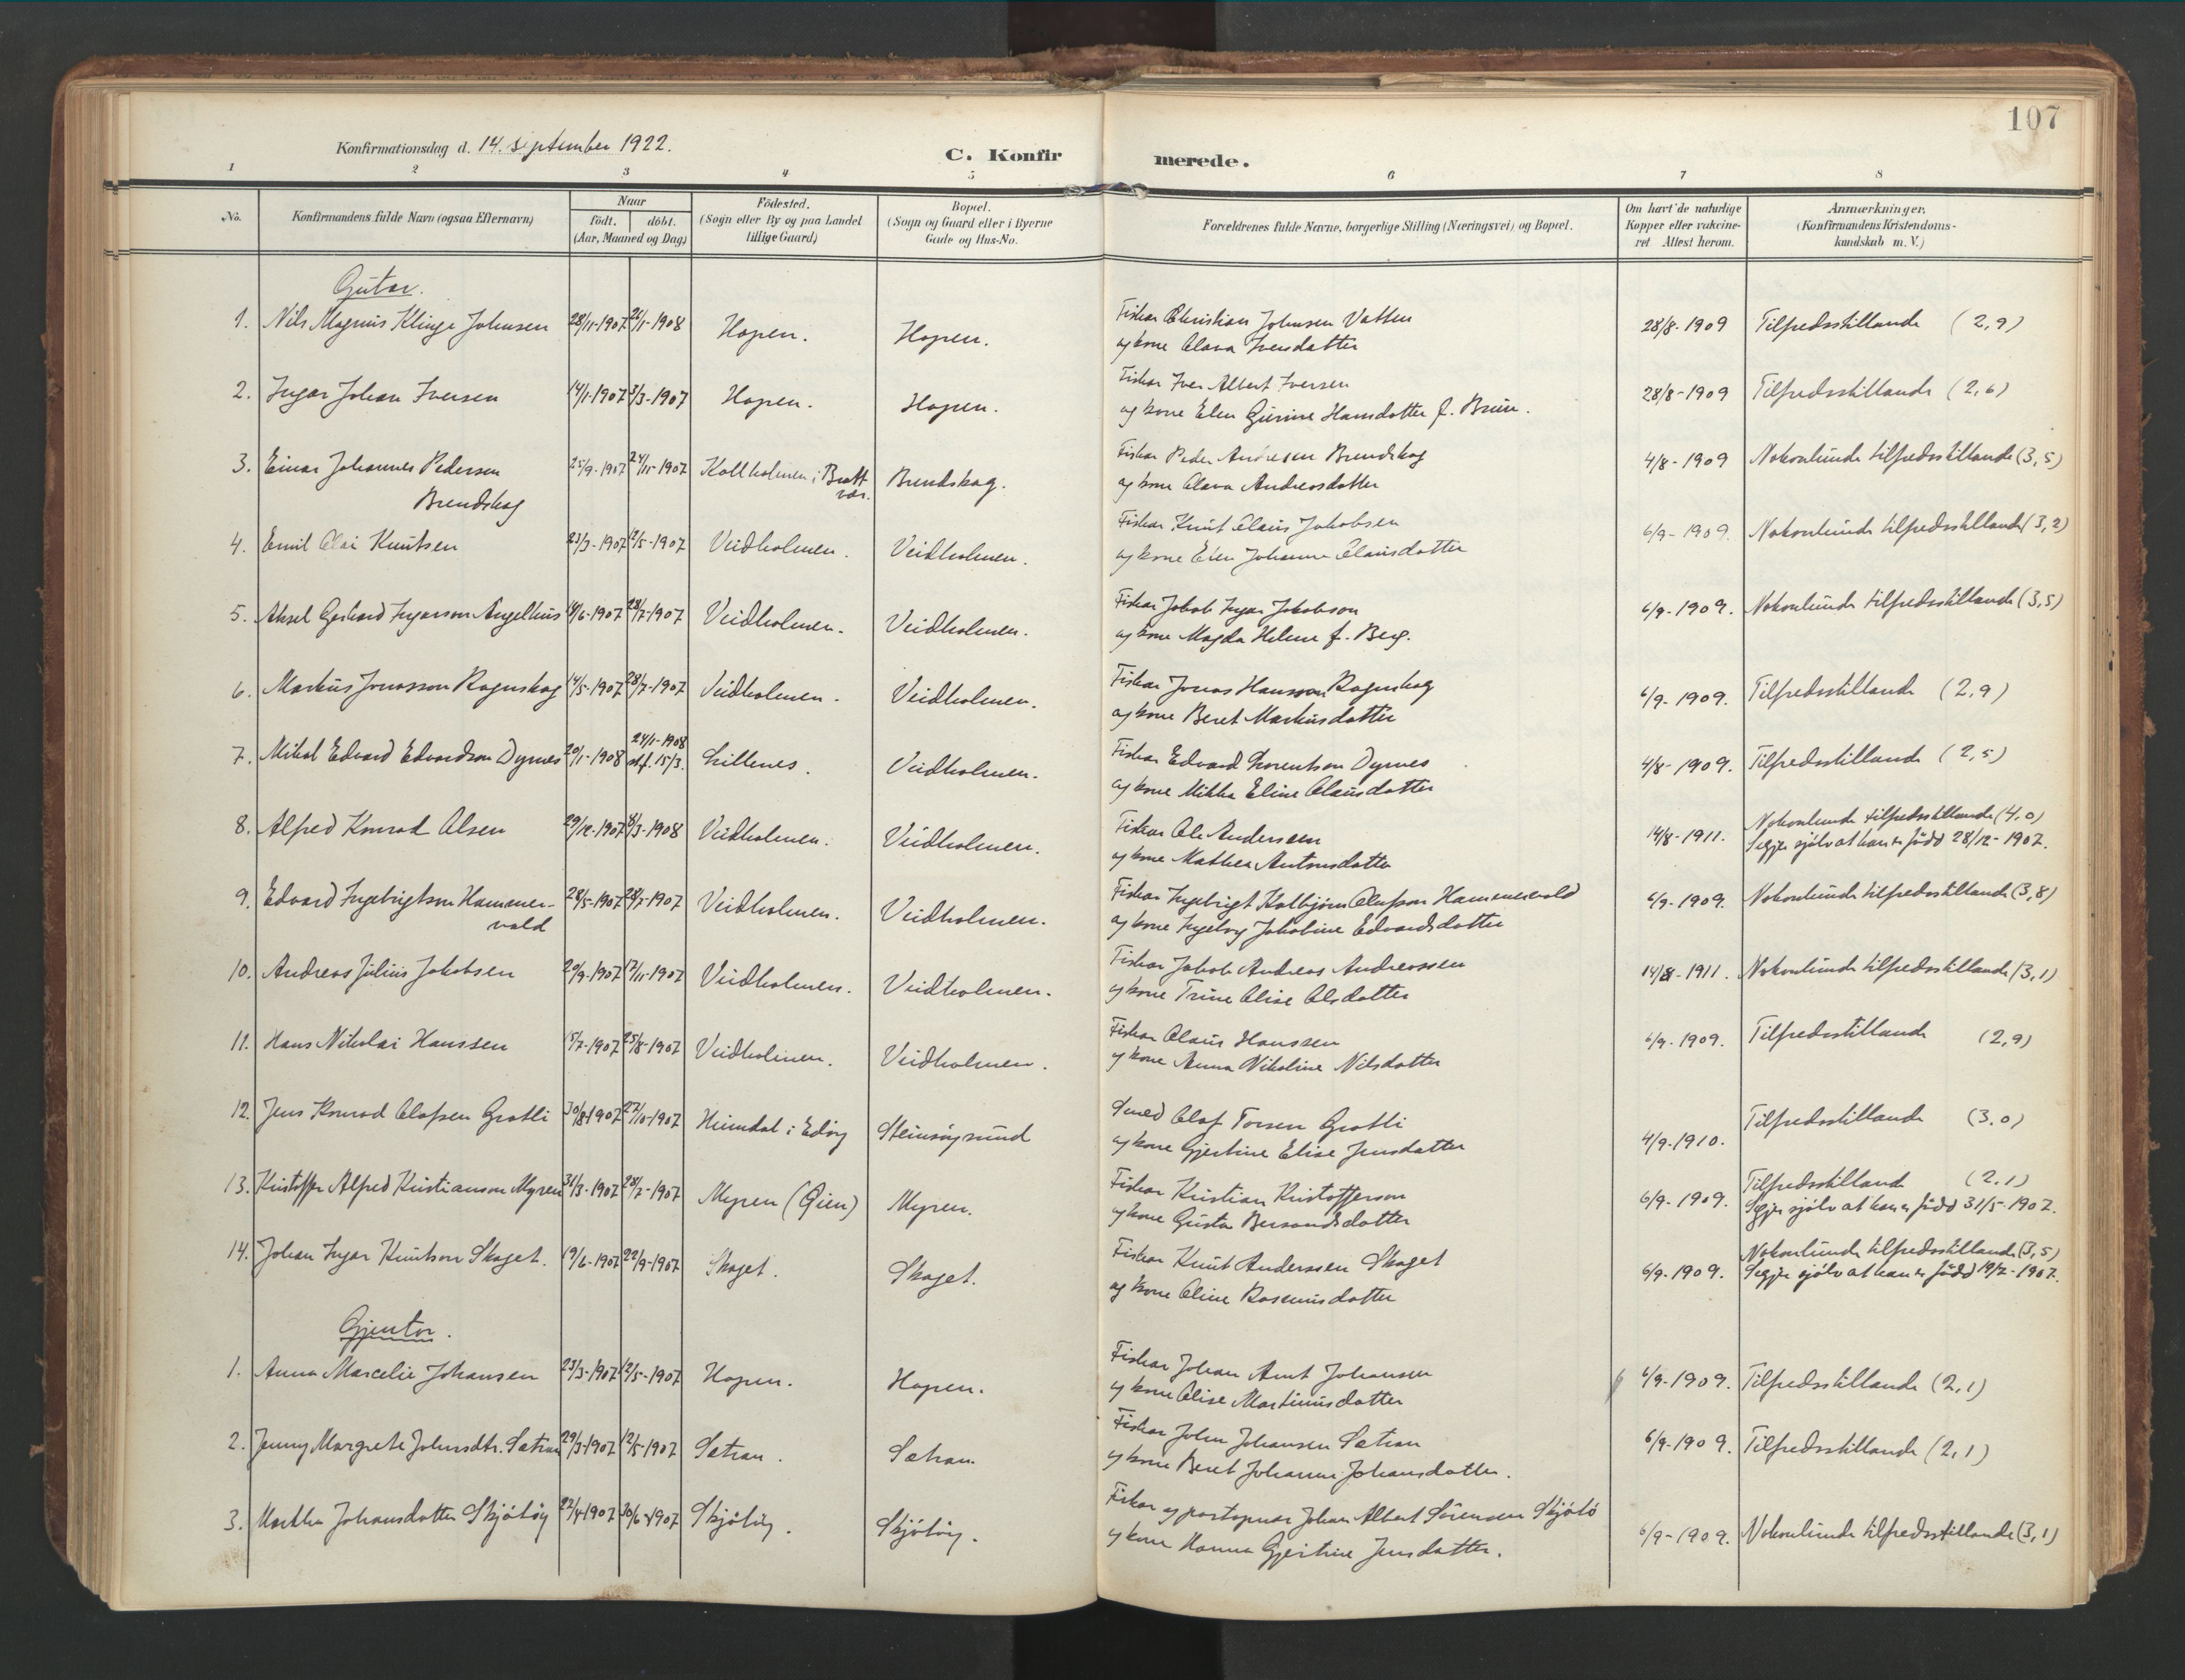 107
Konfirmationsdag d. 14. september 1922.
C. Konfirmerede.
1 2 3 4 5 6 7 8
No.
Konfirmandens fulde Navn (ogsaa Efternavn)
Naar
födt. döbt.
(Aar, Maaned og Dag)
Födested.
(Sogn eller By og paa Landet
tillige Gaard)
Bopæl.
(Sogn og Gaard eller i Byerne
Gade og Hus-No.
Forældrenes fulde Navne, borgerlige Stilling (Næringsvei) og Bopæl.
Om havt de naturlige
Kopper eller vakcine-
ret Attest herom.
Anmærkninger.
(Konfirmandens Kristendoms-
kundskab m. V.)
Gutar.
1. Nils Magnus Klinge Johnsen 28/11-1907 26/1-1908 Hopen. Hopen. Fiskar Christian Johnsen Vatten 28/8-1909 Tilfredsstillande (2,9)
og kone Olava Iversdatter
2. Ingar Johan Iversen 14/1-1907 3/3-1907 Hopen. Hopen. Fiskar Iver Albert Iversen 28/8-1909 Tilfredsstillande (2,6)
og kone Elen Gurine Hansdatter f. Bruu.
3. Einar Johannes Pedersen 25/9-1907 24/11-1907 Kollholmen i Bratt Brendskag. Fiskar Peder Andresen Brendskag 4/8-1909 Nokonlunde tilfredsstillande (3,5)
Brendskag vær. og kone Olava Andreasdatter
4. Emil Olai Knutsen 23/3-1907 12/5-1907 Veidholmen. Veidholmen. Fiskar Knut Olaus Jakobsen 6/9-1909. Nokonlunde tilfredsstillande (3,2)
og kone Elen Johanne Olausdatter
5. Aksel Gerhard Ingarson Angelhus 18/6-1907 28/7-1907 Veidholmen. Veidholmen. Fiskar Jakob Ingar Jakobson 6/9-1909. Nokonlunde tilfredsstillande (3,5)
og kone Magda Helene f. Berg.
6. Markus Jonasson Ragnskag 14/5-1907 28/7-1907 Veidholmen. Veidholmen. Fiskar Jonas Hansson Ragnskag 6/9-1909. Tilfredsstillande (2,9)
og kone Beret Markusdatter
7. Mikal Edvard Edvardson Dyrnes 20/1-1908 24/1-1908 Lillenes. Veidholmen. Fiskar Edvard Lorentson Dyrnes 4/8-1909. Tilfredsstillande (2,5)
stf. 15/3. og kone Mikka Eline Olausdatter
8. Alfred Konrad Olsen 29/12-1907 8/3-1908 Veidholmen. Veidholmen. Fiskar Ole Anderssen 14/8-1911. Nokonlunde tilfredsstillande (4,0)
og kone Mathea Antonsdatter Segjer sjölv at han er född 28/12-1907.
9. Edvard Ingebrigtson Hammer- 28/5-1907 28/7-1907 Veidholmen. Veidholmen. Fiskar Ingebrigt Kolbjörn Olufson Hammervold 6/9-1909. Nokonlunde tilfredsstillande (3,8)
vold og kone Ingeborg Jakobine Edvardsdatter
10. Andreas Julius Jakobsen 20/9-1907 17/11-1907 Veidholmen. Veidholmen. Fiskar Jakob Andreas Andreassen 14/8-1911. Nokonlunde tilfredsstillande (3,1)
og kone Trine Olise Olsdatter
11. Hans Nikolai Hanssen 15/7-1907 25/8-1907 Veidholmen. Veidholmen. Fiskar Olaus Hanssen 6/9-1909. Tilfredsstillande (2,9)
og kone Anna Nikoline Nilsdatter
12. Jens Konrad Olafsen Grotli 30/8-1907 27/10-1907 Heimdal i Edöy Steinsöysund Smed Olaf Torsen Grotli 4/9-1910. Tilfredsstillande (3.0)
og kone Gjertine Elise Jensdatter
13. Kristoffer Alfred Kristianson Myren 31/3-1907 28/7-1907 Myren (Öien) Myren. Fiskar Kristian Kristofferson 6/9-1909. Tilfredsstilland (2,1)
og kone Gusta Bersandsdatter Segjer sjölv at han er född 31/5-1907.
14. Johan Ingar Knutson Skaget. 19/6-1907 22/9-1907 Skaget. Skaget. Fiskar Knut Anderssen Skaget 6/9-1909. Nokonlunde tilfredsstillande (3,5)
og kone Oline Rasmusdatter Segjer sjölv at han er född 19/7-1907.
Gjentor.
1. Anna Marcelie Johansen 23/3-1907 12/5-1907 Hopen. Hopen. Fiskar Johan Arnt Johansen 6/9-1909. Tilfredsstillande (2,1)
og kone Olise Martinusdatter
2. Jenny Margrete Johnsdtr. Sætran 29/3-1907 12/5-1907 Sætran. Sætran. Fiskar John Johansen Sætran 6/9-1909. Tilfredsstillande (2,1)
og kone Beret Johanne Johansdatter.
3. Martha Johansdatter Skjölöy 22/4-1907 30/6-1907 Skjölöy. Skjölöy. Fiskar og postopnar Johan Albert Sörensen Skjölö 6/9-1909. Nokonlunde tilfredsstillande (3,1)
og kone Hanna Gjertine Jensdatter.